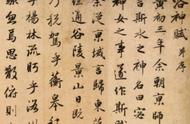 洛神賦 并序
黃初三年余朝京師
言斯水之神名曰宓
神女之事遂作斯
余從京域言歸東
越通谷陵景山日
乃稅駕乎蘅皋
乎楊林流眄乎
焉思散俯則